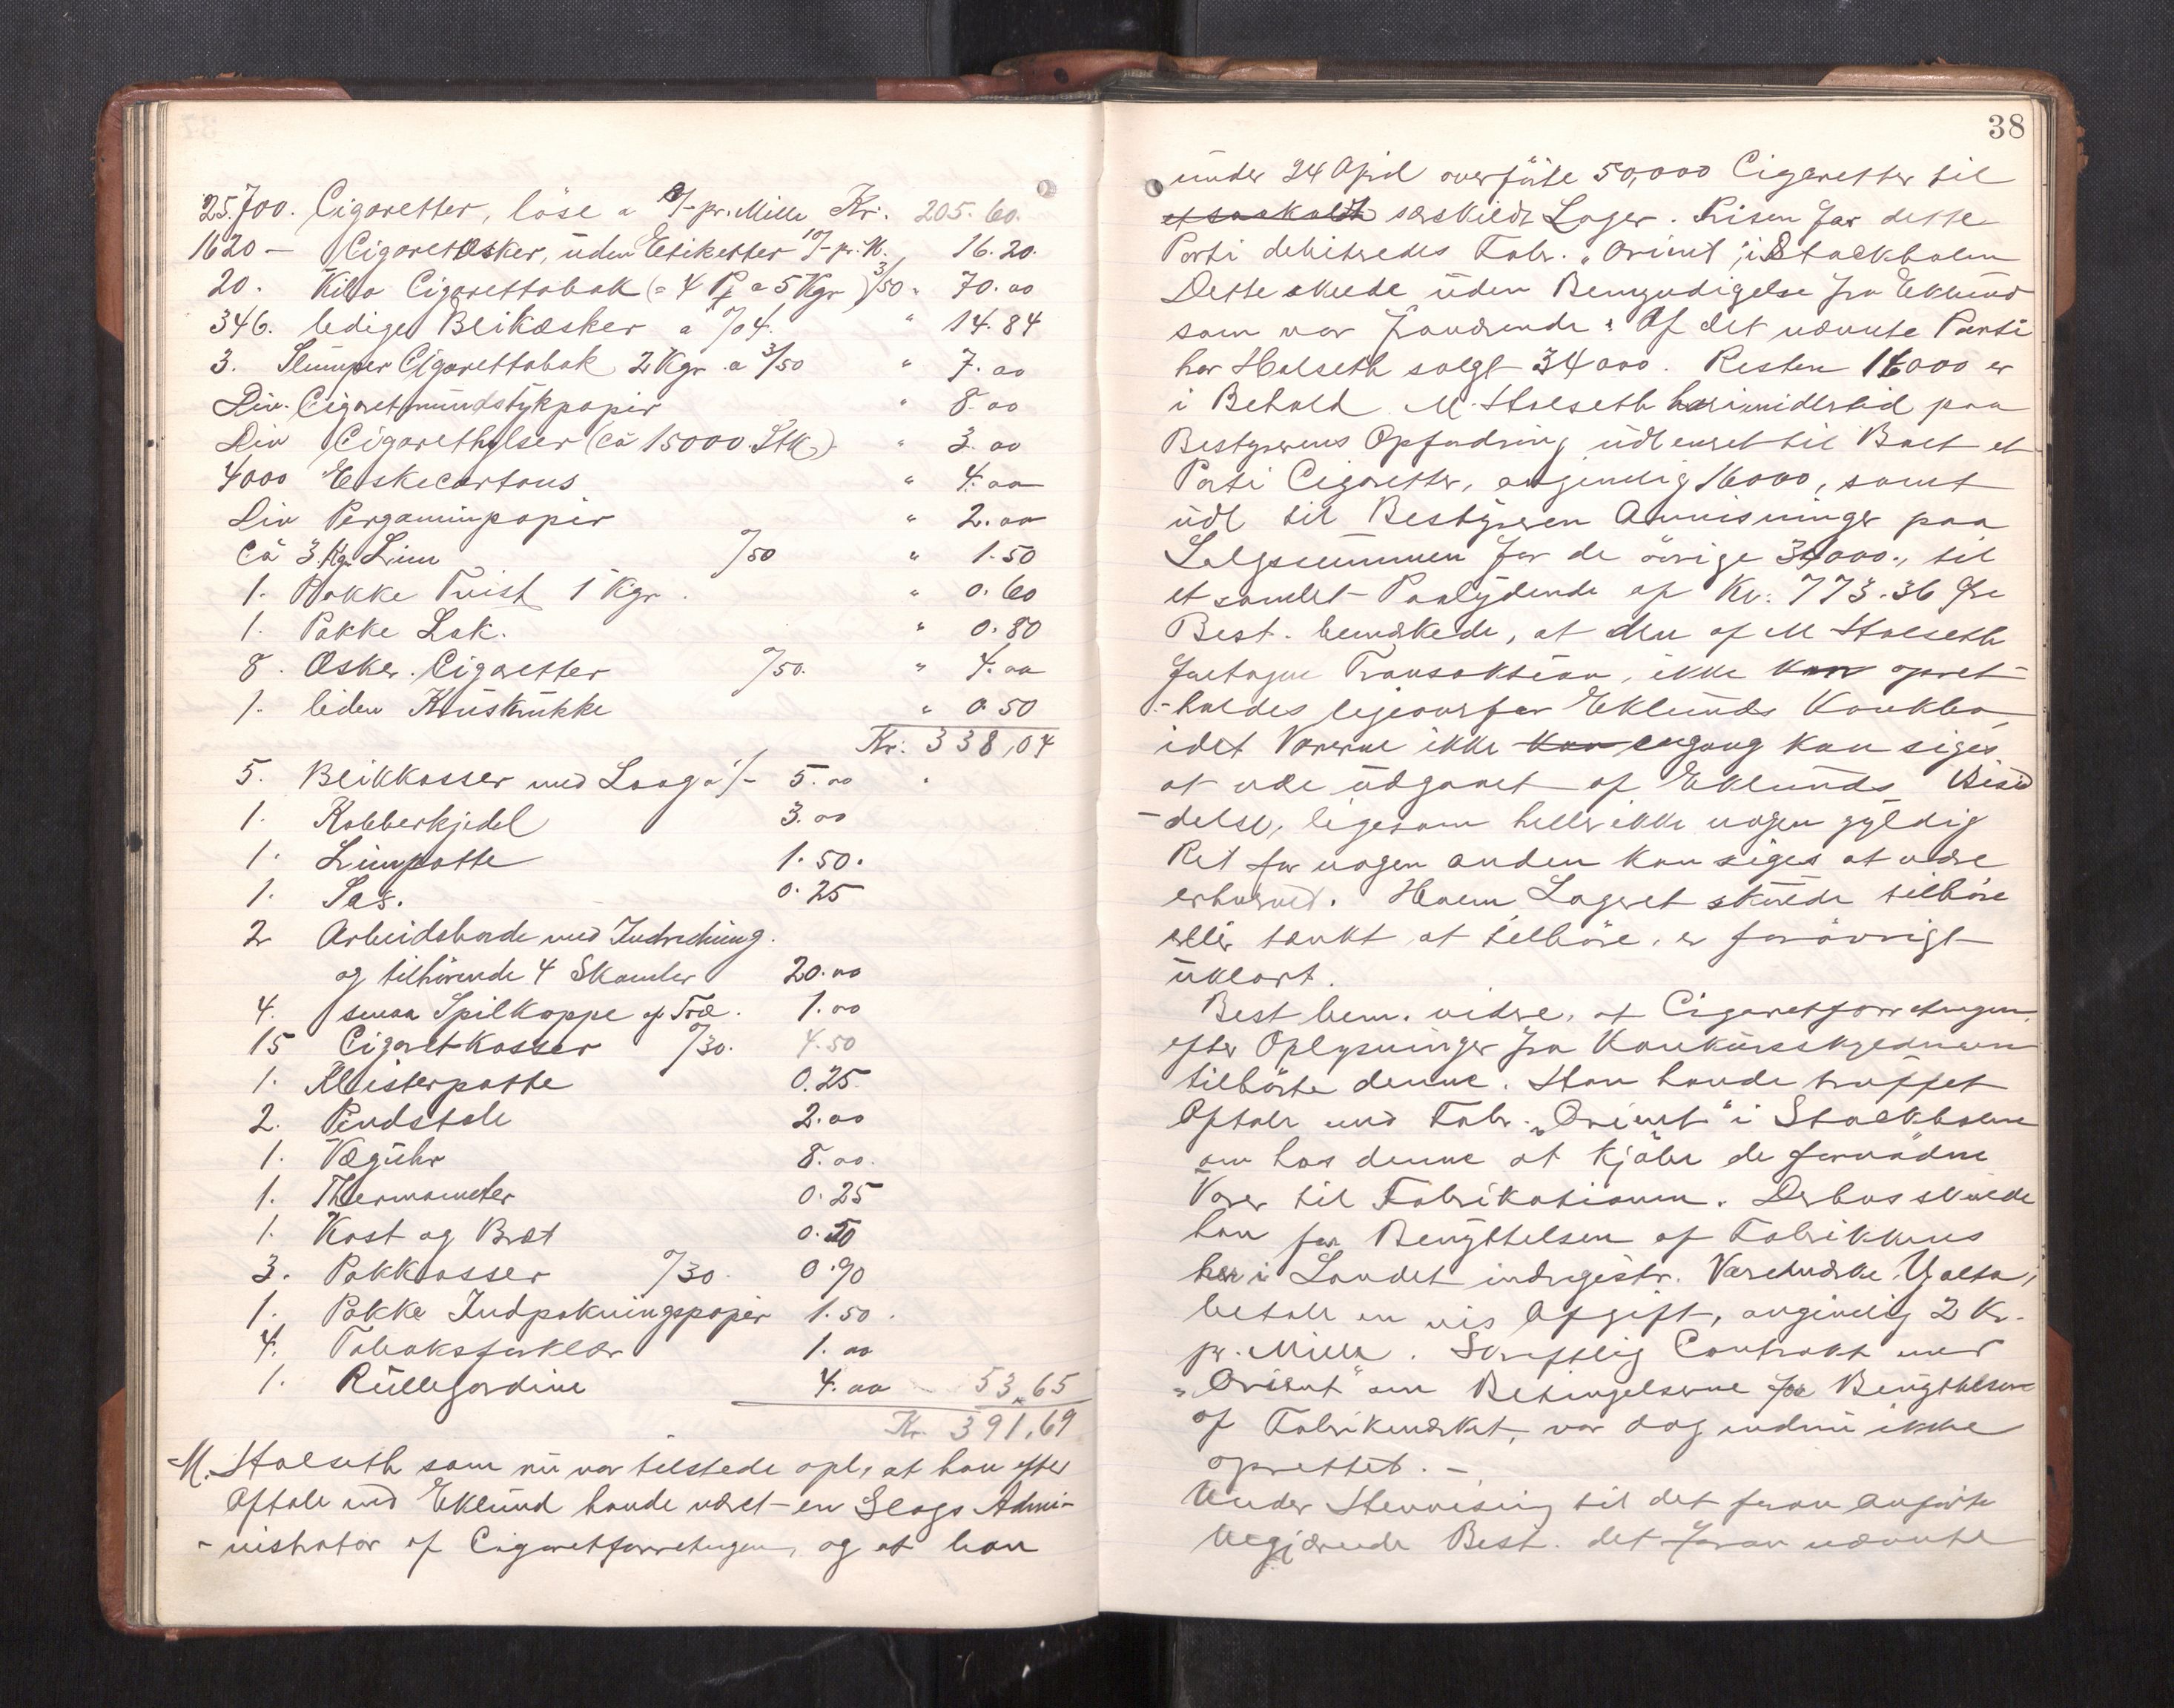 25.700. Cigaretter, löse a 8/- pr. Mille Kr. 205.60.
1620 – Cigaretæsker, uden Etiketter 10/- pr. M. „ 16.20.
20. Kilo Cigarettobak (= 4 Pk a 5 Kgr) 3/50 „ 70.00
346. ledige Blikæsker a 0/04. „ 14.84
3. Slumper Cigarettobak 2 Kgr a 3/50 „ 7.00
Div. Cigaretmundstykpapir „ 8.00
Div Cigarethylser (ca 15000 Stk) „ 3.00
4000 Eskecartons „ 4.00
Div Pergaminpapir „ 2.00
Ca 3 Kg. Lim 0/50 „ 1.50
1. Pakke Tvist 1 Kgr. „ 0.60
1. Pakke Lak. „ 0.80
8. Æsker Cigaretter 0/50. „ 4.00
1. liden Kruskrukke „ 0.50
Kr. 338,04
5. Blikkasser med Laag a 1/- 5.00
1. Kobberkjedel 3.00
1. Limpotte 1.50.
1. Sax. 0.25
2 Arbeidsborde med Indredning.
og tilhörende 4 Skamler 20.00
4. smaa Spilkoppe af Træ. 1.00
15 Cigaretkasser 0/30. 4.50
1. Klisterpotte 0.25
2. Pindstole 2.00
1. Væguhr 8.00.
1. Thermometer 0.25
1. Kost og Bræt 0.50
3. Pakkasser 0/30. 0.90
1. Pakke Indpakningspapir 1.50.
4. Tobaksforklær 1.00
1. Rullegardine 4.00 53,65
Kr. 391,69
M. Holseth som nu var tilstede opl. at han efter
Aftale med Eklund havde været en Slags Admi-
-nistrator af Cigaretforretningen, og at han
38
under 24 April overförte 50,000 Cigaretter til
et saakaldt særskildt Lager. Prisen for dette
Parti debiteredes Fabr. „Orient", i Stockholm
Dette skede uden Bemyndigelse fra Eklund
som var fraværende. Af det nævnte Parti
har Holseth solgt 34000. Resten 16000 er
i Behold. M. Holseth har imidlertid paa
Bestyrerens Opfordring udleveret til Boet et
Parti Cigaretter, angivelig 16000, samt
udl til Bestyreren Anvisninger paa
Salgssummen for de övrige 34000., til
et samlet Paalydende af Kr. 773.36 Öre
Best. bemærkede, at den af M Holseth
foretagne Transaktion, ikke kan opret-
-holdes ligeoverfor Eklunds Konkbo,
idet Varerne ikke kan engang kan siges
at være udgaaet af Eklunds Besid
-delse, ligesom heller ikke nogen gyldig
Ret for nogen anden kan siges at være
erhvervet. Hvem Lageret skulde tilhöre
eller tænkt at tilhöre, er forövrigt
uklart.
Best bem. videre, at Cigaretforretningen
efter Oplysninger fra Konkursskyldneren
tilhörte denne. Han havde truffet
Aftale med Fabr. „Orient" i Stockholm
om hos denne at kjöbe de fornödne
Varer til Fabrikationen. Derhos skulde
han for Benyttelsen af Fabrikkens
her i Landet indregistr. Varemærke, Yalta,
betale en vis Afgift, angivelig 2 Kr.
pr. Mille. Skriftlig Contrakt med
„Orient" om Betingelserne for Benyttelsen
af Fabrikmærket, var dog endnu ikke
oprettet. –
Under Henvisning til det foran anförte
begjærede Best. det foran nævnte